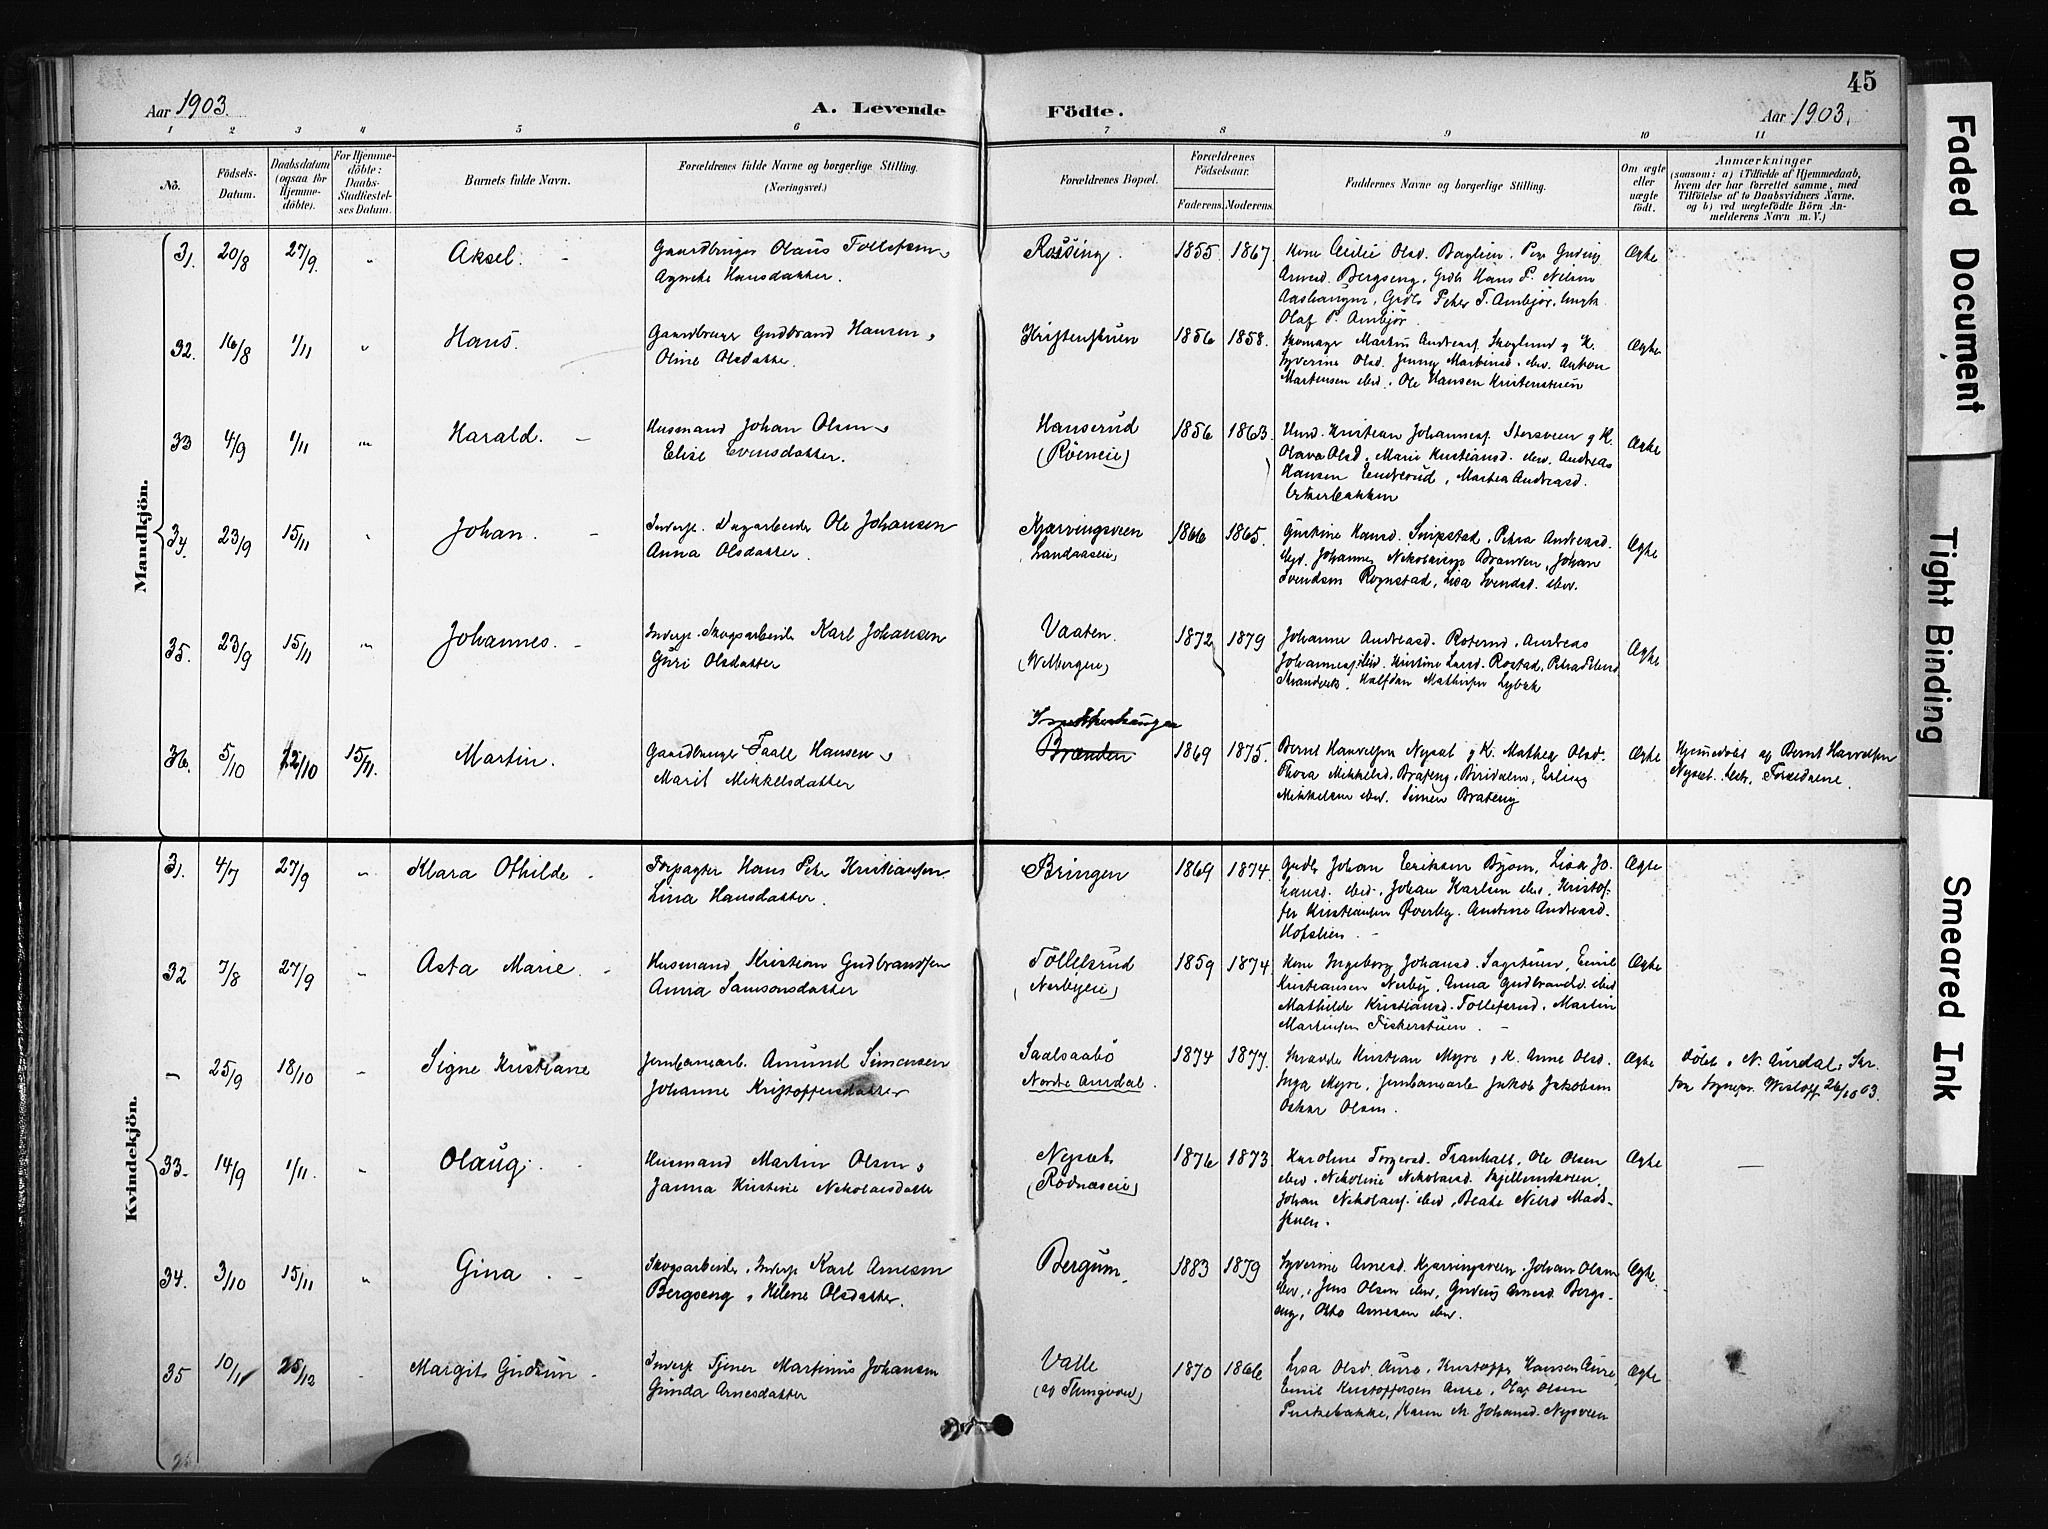 45
Aar 1903. A. Levende Födte. Aar 1903.
1 2 3 4 5 6 7 8 9 10 11
No.
Födsels-
Datum.
Daabsdatum
(ogsaa for
Hjemme-
döbte).
For Hjemme-
döbte:
Daabs-
Stadfæstel-
ses Datum.
Barnets fulde Navn.
Forældrenes fulde Navne og borgerlige Stilling.
(Næringsvei.)
Forældrenes Bopæl.
Forældrenes
Födselsaar.
Faderens. Moderens.
Faddernes Navne og borgerlige Stilling.
Om ægte
eller
uægte
födt.
Anmærkninger
(saasom: a) i Tilfælde af Hjemmedaab,
hvem der har forrettet samme, med
Tilföielse af to Daabsvidners Navne,
og b) ved uægtefödte Börn An-
melderens Navn m. V.)
Mandkjön.
31. 20/8 27/9. " Aksel. Gaardbruger Olaus Tollefsen
Agnethe Hansdatter.
Røssing. 1855. 1867. Kone Cecilie Olsd.
Arnesd. Bergseng, Hans P. Nilsen
Peter T. Ambjør,
Olaf P. Ambjør. Ægte
32. 16/8 1/11 " Hans. Gaardbruger Gudbrand Hansen
Oline Olsdatter.
Kristenstuen 1856 1858. Skomager Martin Andreass. Skoglund og K.
Syverine Olsd. Jenny Martinsd. ebd. Anton
Martinsen ebd., Ole Hansen Kristenstuen Ægte
33 4/9 1/11 " Harald. Husmand Johan Olsen
Elise Evensdatter.
Hanserud
(Røeneie) 1856 1863. Kristian Johanness. Storsveen og K.
Olava Olsd., Marie Kristiansd. ebd. Andreas
Hansen Endrerud, Marthea Andreasd. Ægte
34. 23/9 15/11 " Johan. Inderst. Dagarbeider Ole Johansen
Anna Olsdatter.
Kjærringsveen
Landaaseie) 1866 1865. Gustine Hansd. Snipstad, Petra Andreasd.
ebd. Johannes Nikolaisen Brænden, Johan
Svendsen Rognstad, Lisa Svendsd. ebd. Ægte
35. 23/9 15/11 " Johannes. Inderst. Skogsarbeider Karl Johansen
Guri Olsdatter
Vaaten.
(Velbergeie) 1872 1879 Johanne Andreasd. Roterud, Andreas
Johanness. ebd. Kristine Larsd. Rostad,
Halfdan Mathisen Ægte
36. 5/10 12/10 15/11. Martin. Gaardbruger Taale Hansen
Marit Mikkelsdatter
Snekkerhaugen
Brænden 1869 1875. Bernt Harvelsen Nysæt og K. Mathea Olsd.
Thora Mikkelsd. Brateng, Erling
Mikkelsen ebd. Simen Brateng Ægte Hjemmedøbt af Bernt Harvelsen
Nysæt. Forældrene.
Kvindekjön.
31. 4/7 27/9 " Klara Othilde Forpagter Hans Peter Kristiansen
Lina Hansdatter.
Bringen 1869 1874. Johan Eriksen Byom, Lisa Jo-
hansd. ebd., Johan Karlsen ebd., Kristof-
fer Kristiansen Øverby. Andrine Andreasd.
Hofslien. Ægte
32 7/8 27/9 " Asta Marie. Husmand Kristian Gudbrandsen
Anna Samsonsdatter
Tollefsrud
(Nerbyeie) 1859 1874. Kone Ingeborg Johansd. Sagstuen, Emil
Kristiansen Nerby, Anna Gudbrandsd. ebd
Mathilde Kristiansd. Tollefsrud, Martin
Martinsen Fiskerstuen. Ægte
- 25/9 18/10 " Signe Kristiane Jernbanearb. Amund Simensen
Johanne Kristoffersdatter
Saalsaabø
Nordre Aurdal. 1874 1877. Kristian Myre og K. Anne Olsd.
Inga Myre, Jernbanearb. Jakob Jakobsen
Oskar Olsen. Ægte døbt i N. Aurdal. 26/10 03.
33. 14/9 1/11. " Olaug. Husmand Martin Olsen
Janna Kristine Nikolaisdatter
Nysæt
(Rødnæseie) 1876 1873. Karoline Torgersd. Tranhalt, Ole Olsen
ebd. Nikoline Nikolaisd.
Johan Nikolais. ebd, Beate Nilsd Mads-
stuen. Ægte
34. 3/10 15/11 " Gina. Skogsarbeider, Inderst Karl Arnesen
Bergseng, Helene Olsdatter.
Bergum. 1883 1879 Syverine Arnesd. Kjærringsveen. Johan Olsen
ebd., Jens Olsen ebd., Arnesd. Bergs-
eng, Otto Arnesen ebd. Ægte.
35 10/11 25/12 Margit Gudrun Inderst Tjener Martinius Johansen
Gunda Arnesdatter
Valle 1870 1866 Lisa Olsd. Aure, Kristoffer Hansen Aure,
Emil Kristoffersen Aure, Olaf Olsen
Karen M. Johansd. Nysveen Ægte
Faded Document
Tight Binding
Smeared Ink